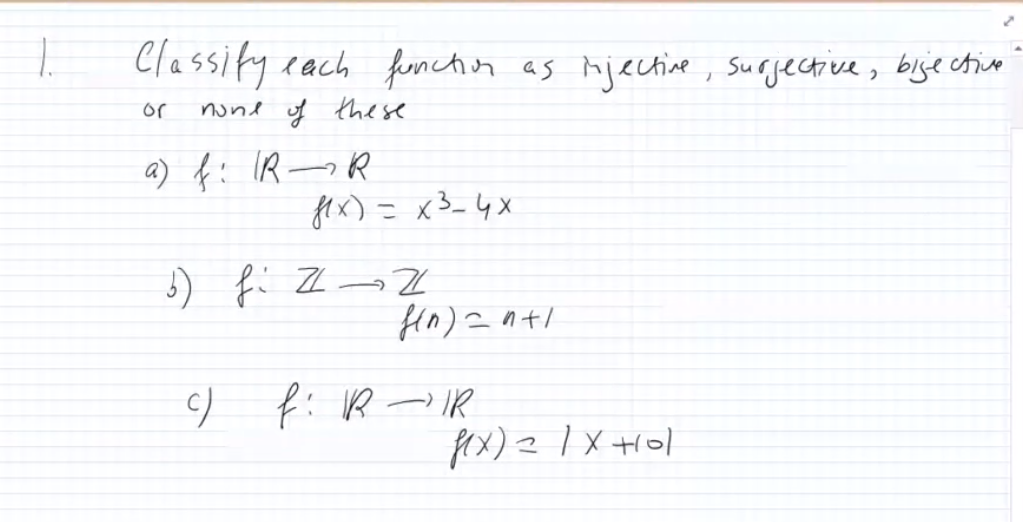 1. Classify each function as injective, surjective, bijective
or none of these
a) f: ℝ → ℝ
f(x) = x³ - 4x
b) f: ℤ → ℤ
f(n) = n+1
c) f: ℝ → ℝ
f(x) = |x+10|